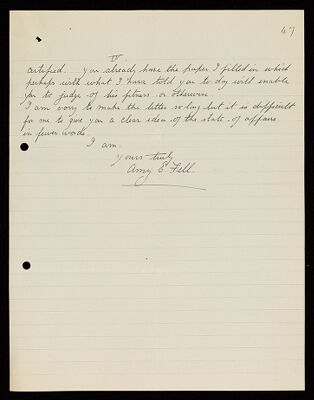 47
IV
certified. You already have the paper I filled in which
perhaps with what I have told you to day will enable
you to judge of his fitness or otherwise.
I am sorry to make the letter so long but it is difficult
for me to give you a clear idea of the state of affairs
in fewer words.
I am.
Yours truly
Amy E. Fell.